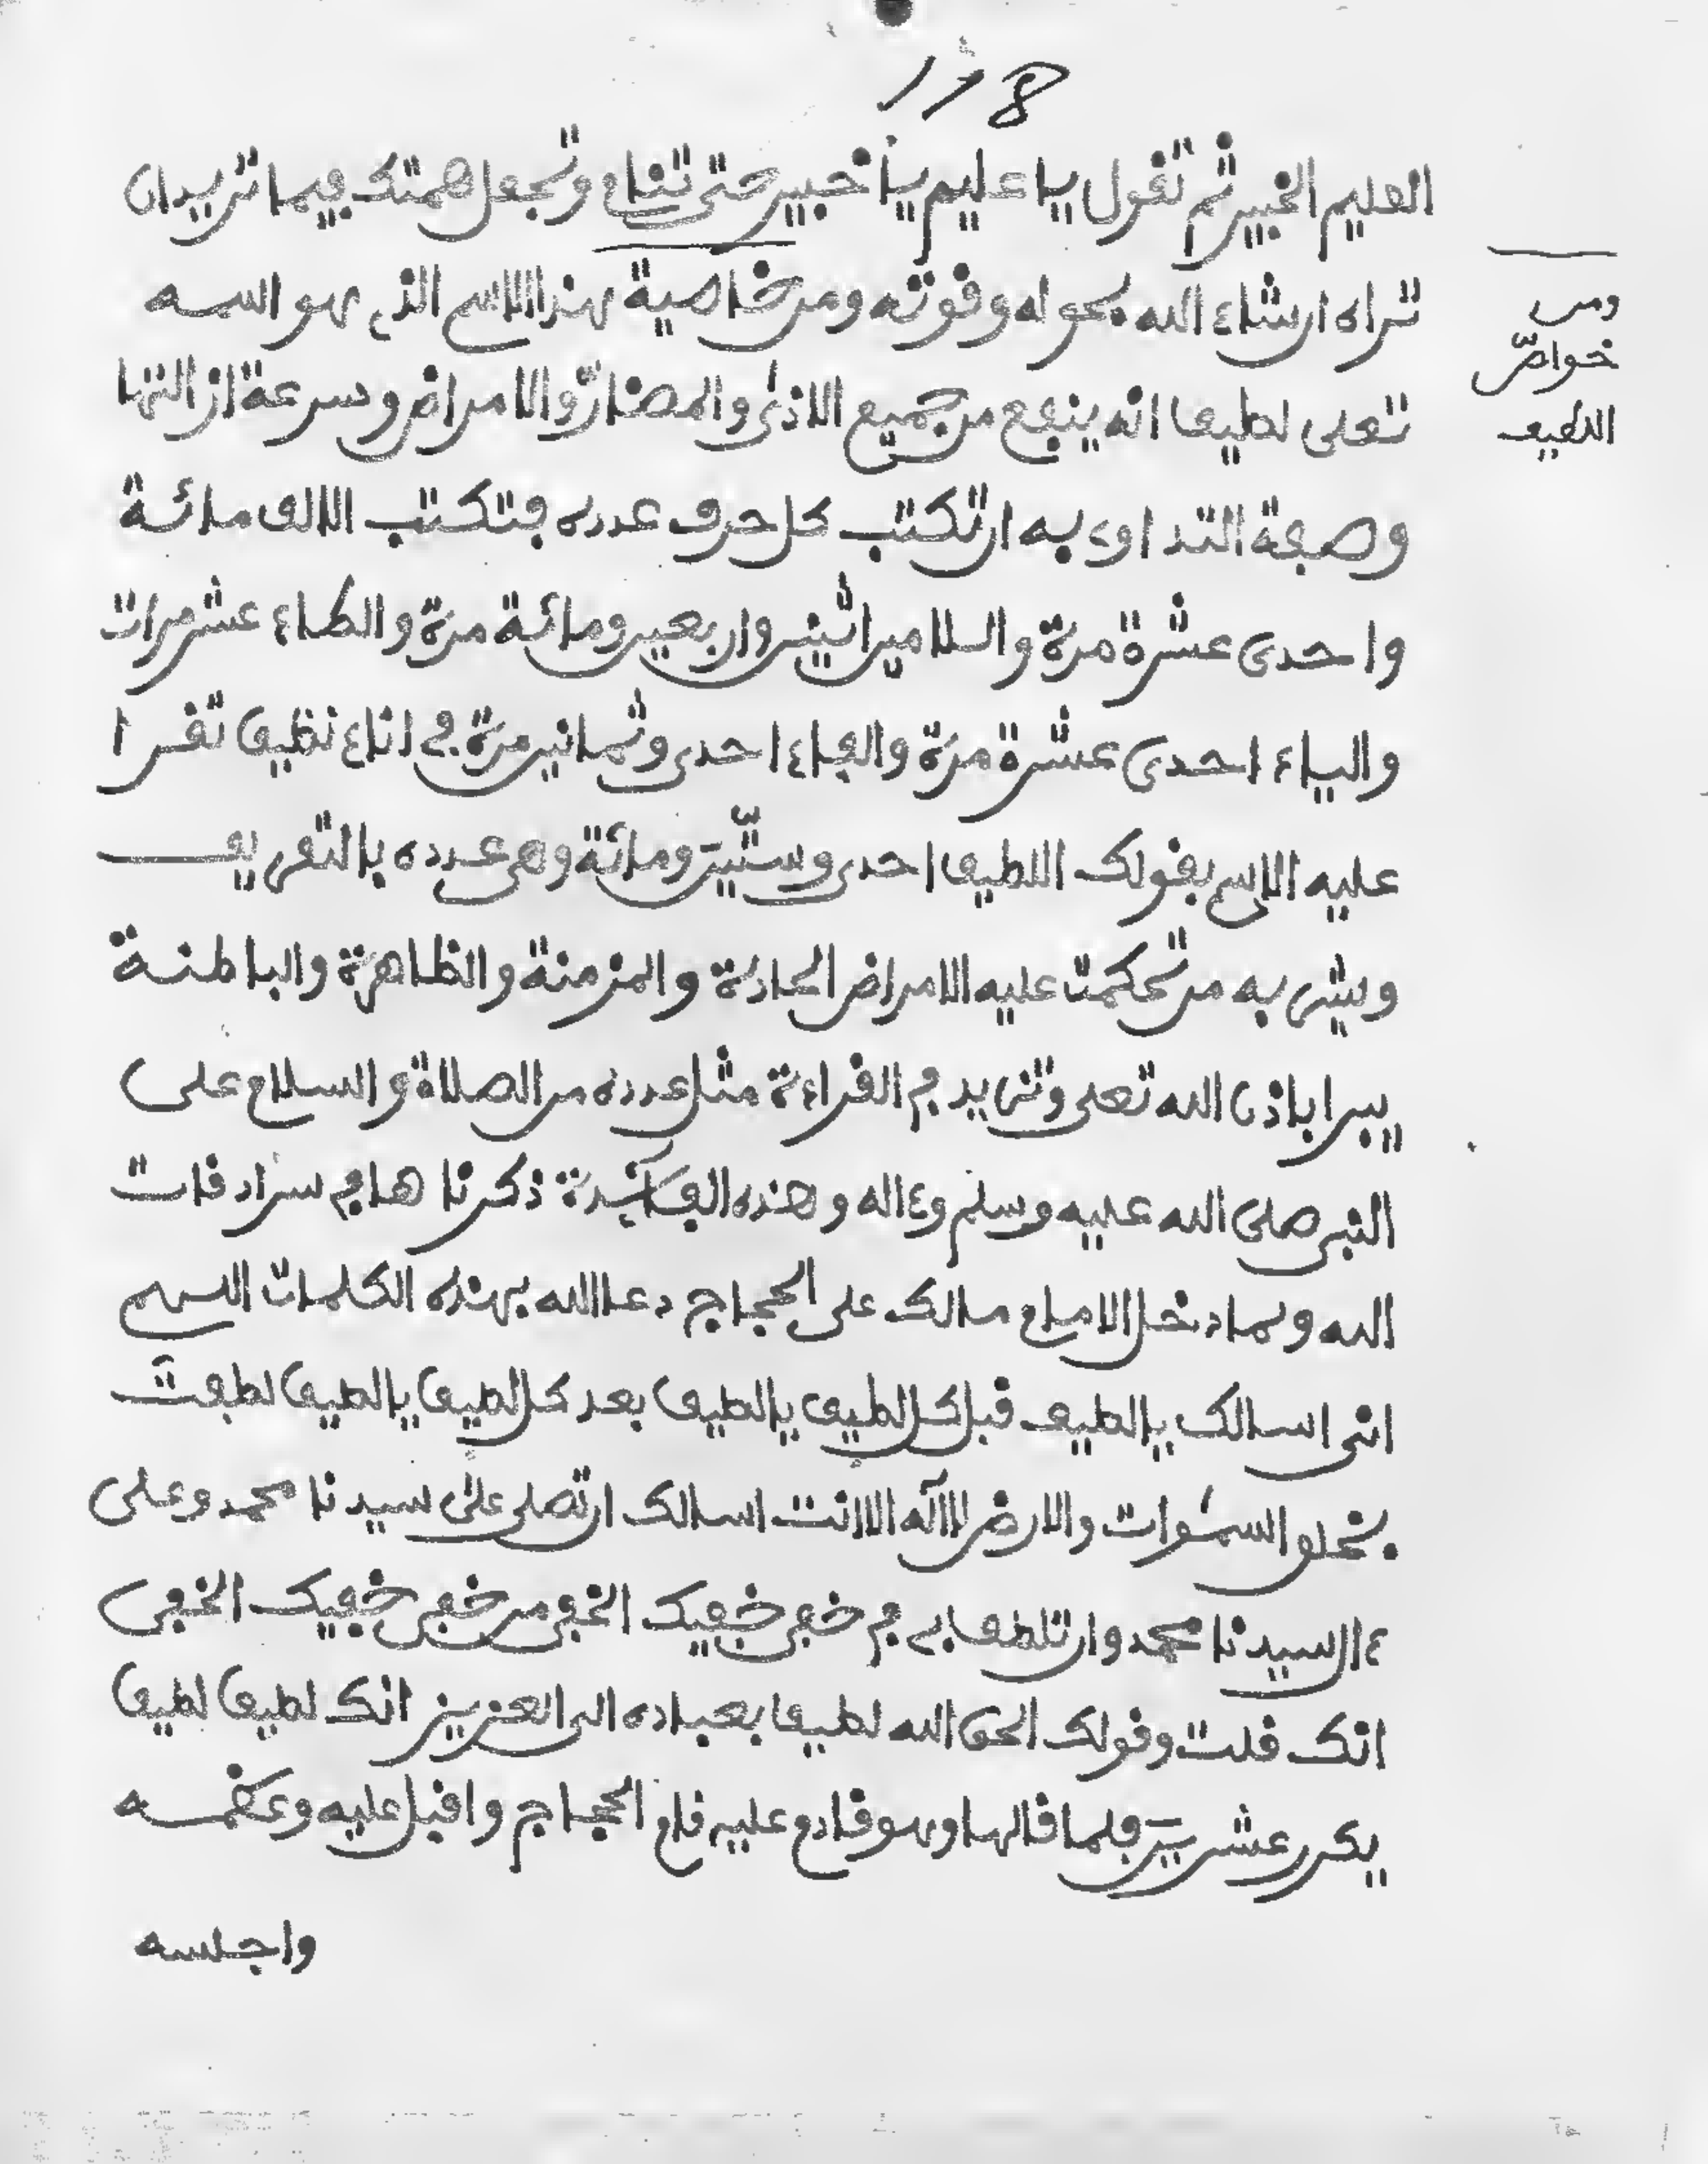 118
العليم الخبير ثم تقول يا عليم يا خبير حتى تنام وتجعل همتك فيما تريد ان
تراه ان شاء الله بحوله وقوته ومن خاصية هذا الاسم الذي هو اسمه
تعلى لطيف انه ينفع من جميع الاذى والمضار والامراض وسرعة ازالتها
وصفة التداوي به ان تكتب كل حرف عدده فتكتب الالف مائة
واحدى عشرة مرة واللامين اثنين واربعين ومائة مرة والطاء عشر مرات
والياء احدى عشرة مرة والفاء احدى وثمانين مرة في اناء نظيف تقرا
عليه الاسم بقولك اللطيف احدى وستّين ومائة وهي عدده بالتعريف
ويشربه من تحكمت عليه الامراض الحادثة والمزمنة والظاهرة والباطنة
يبرا باذن الله تعلى وتزيد في القراءة مثل عدده من الصلاة والسلام على
النبي صلى الله عليه وسلم وءاله وهذه الفائدة ذكرناها في سرادقات
الله ولما دخل الامام مالك على الحجاج دعا الله بهذه الكلمات اللهم
انى اسالك يا لطيف قبل كل لطيف يا لطيف بعد كل لطيف يا لطيف لطفت
بخلق السموات والارض لا اله الا انت اسالك ان تصلى على سيدنا محمد وعلى
ءال سيدنا محمد وان تلطف بي في خفي خفيك الخفي من خفي خفيك الخفي
انك قلت وقولك الحق الله لطيف بعباده الى العزيز انك لطيف لطيف
يكرر عشرين فلما قالها وهو قادم عليه قام الحجاج واقبل عليه وعظمه
واجلسه
ومن
خواصّ
اللطيف